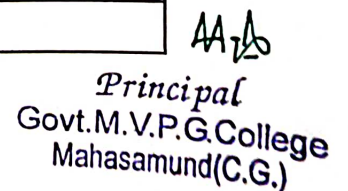 Principal
Govt.M.V.P.G.College
Mahasamund(C.G.)